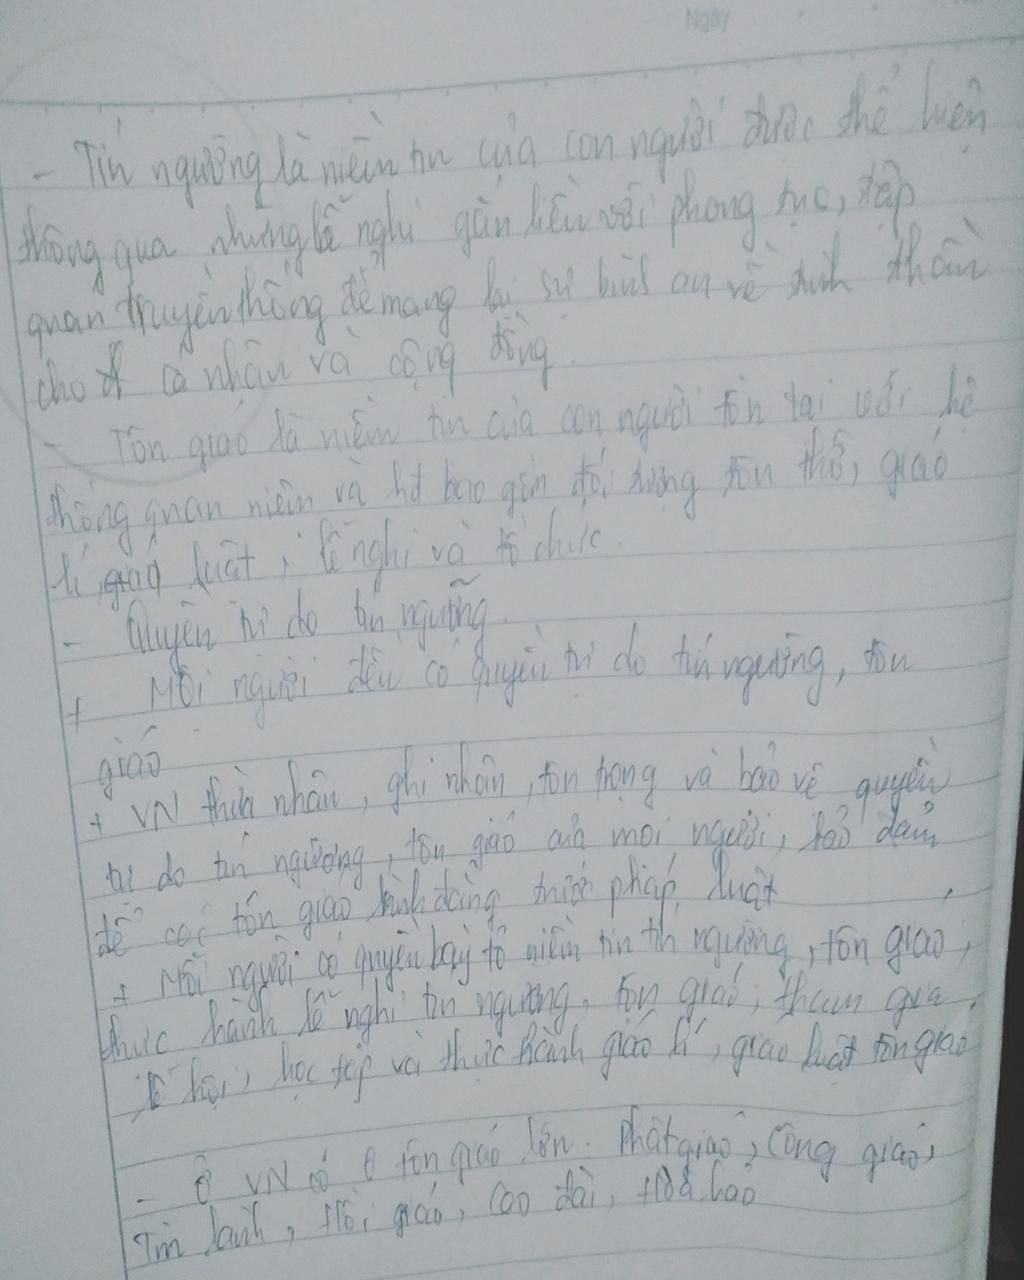 Ngày
- Tín ngưỡng là niềm tin của con người được thể hiện
thông qua những lễ nghi gắn liền với phong tục, tập
quán truyền thống để mang lại sự bình an về tinh thần
cho cá nhân và cộng đồng.
- Tôn giáo là niềm tin của con người tồn tại với hệ
thống quan niệm và hđ bao gồm đối tượng tôn thờ, giáo
lí, giáo luật, lễ nghi và tổ chức.
- Quyền tự do tín ngưỡng.
+ Mọi người đều có quyền tự do tín ngưỡng, tôn
giáo
+ VN thừa nhận, ghi nhận, tôn trọng và bảo vệ quyền
tự do tín ngưỡng, tôn giáo của mọi người, bảo đảm
để các tôn giáo bình đẳng trước pháp luật
+ Mỗi người có quyền bày tỏ niềm tin tín ngưỡng, tôn giáo,
thực hành lễ nghi tín ngưỡng, tôn giáo, tham gia
lễ hội, học tập và thực hành giáo lí, giáo luật tôn giáo
- Ở VN có 6 tôn giáo lớn: Phật giáo, Công giáo,
Tin lành, Hồi giáo, Cao đài, Hoà hảo